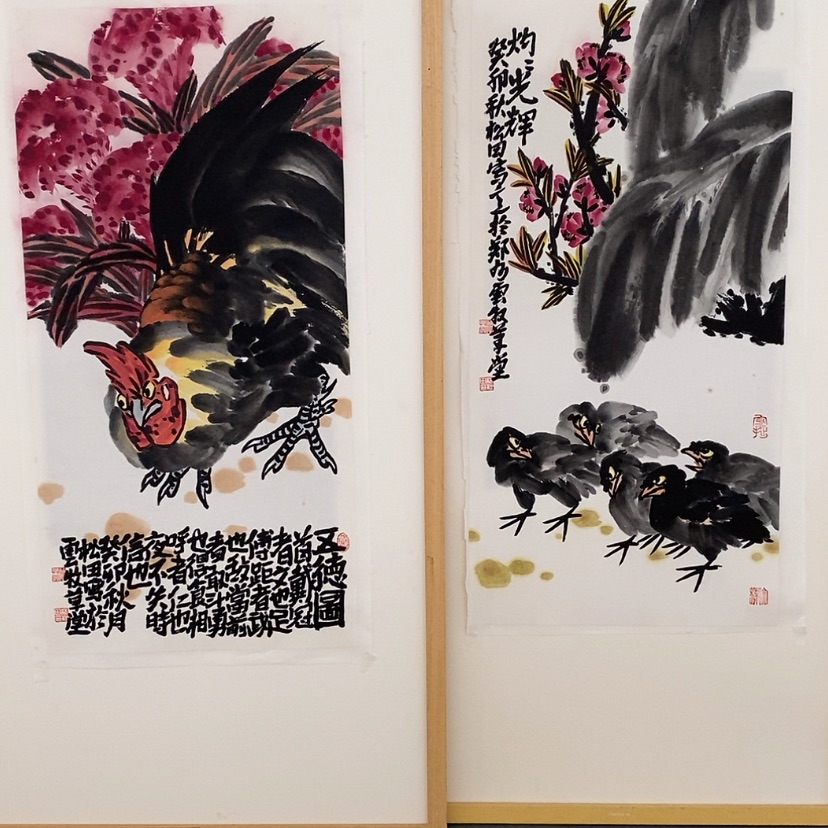 五德圖
首戴冠
者文也足
傅距者武
也敌當前
者敢斗勇
也得食相
呼者仁也
夜不失時
信也
癸卯秋月
松田寫於
雲牧草堂
灼〻光輝
癸卯秋松田寫之於鄭州雲牧草堂